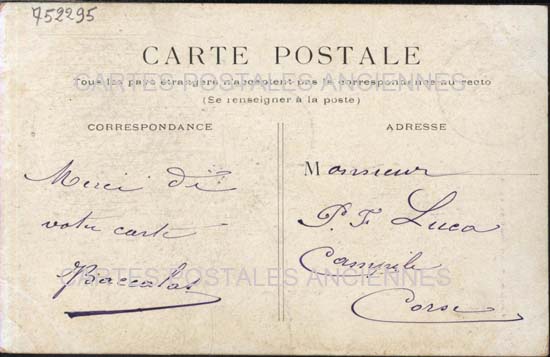 752295
CARTE POSTALE
CARTES POSTALES ANCIENNES
Tous les pays étrangers n'acceptent pas la correspondance au recto
(Se renseigner à la poste)
CORRESPONDANCE
Merci di
votre carte
ADRESSE
Monsieur
P. F. Luca
Campile
Corse
CARTES POSTALES ANCIENNES